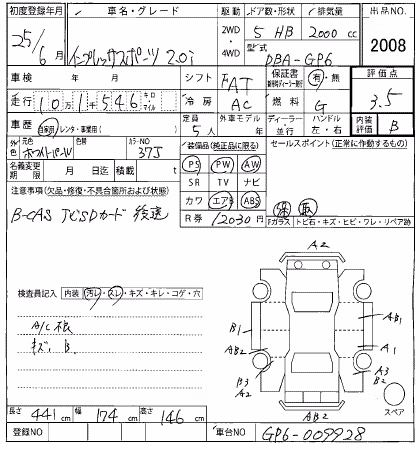 初度登録年月 車名・グレード 駆動 ドア数・形状 排気量 出品NO.
25年 6月 インプレッサスポーツ 2.0i 2WD・4WD 5 HB 2000 cc 2008
型式 DBA-GP6
車検 年 月 シフト FAT 保証書 有・無 評価点
走行 10万1千546 キロ マイル 冷房 AC 燃料 G 3.5
車歴 自家用・レンタ・事業用( ) 定員 5人 外車モデル 年 ディーラー・並行 ハンドル 左・右 内装 B
外色 元色 ホワイトパール 色替 カラーNO 37J 装備品(純正品に限る) セールスポイント(正常に作動するもの)
名義変更期限 月 日迄 積載 t PS PW AW
SR TV ナビ
注意事項(欠品・修復・不具合箇所および状態) カワ エアB ABS
B-CAS TVSDカード 後送 R券 12030円 保 取
Fガラス トビ石・キズ・ヒビ・ワレ・リペア跡
検査員記入 内装 汚レ・スレ・キズ・キレ・コゲ・穴
A/C
キズ, B.
A2
B1
AB2
B3
A2
AB1
A1
A3
B2
AB2
スペア
長さ 441 cm 幅 174 cm 高さ 146 cm
登録NO 車台NO GP6-009928